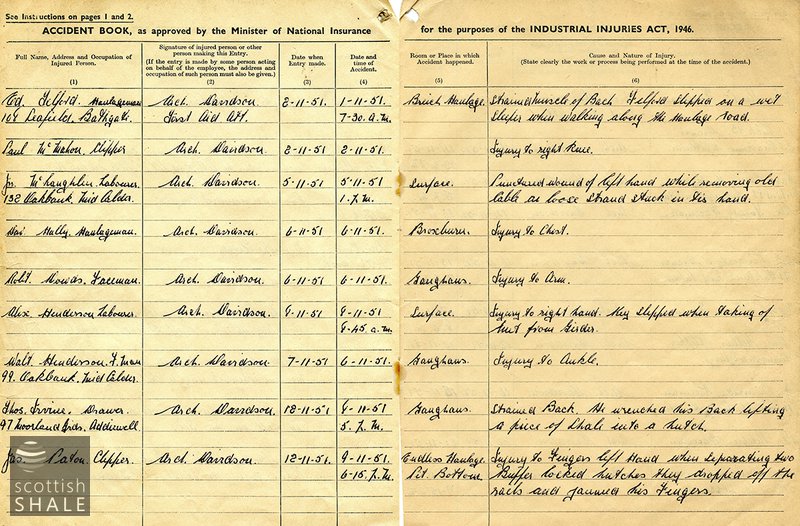 See Instructions on pages 1 and 2.
ACCIDENT BOOK, as approved by the Minister of National Insurance for the purposes of the INDUSTRIAL INJURIES ACT, 1946.
Full Name, Address and Occupation of
Injured Person.
(1)
Signature of injured person or other
person making this Entry.
(If the entry is made by some person acting
on behalf of the employee, the address and
occupation of such person must also be given.)
(2)
Date when
Entry made.
(3)
Date and
time of
Accident.
(4)
Room or Place in which
Accident happened.
(5)
Cause and Nature of Injury.
(State clearly the work or process being performed at the time of the accident.)
(6)
Ed. Telford. Haulageman Arch. Davidson 2-11-51 1-11-51. Breich Haulage. Strained muscle of Back Telford slipped on a wet
107 Leafield. Bathgate. First Aid Att. 7-30. a.m. when walking along the Haulage road.
Paul McMahon. Clipper Arch. Davidson. 2-11-51 2-11-51. Injury to right knee.
Js. McLaughlin. Labourer. Arch. Davidson. 5-11-51 5-11-51 Surface. Punctured wound of left hand while removing old
132 Oakbank. Mid Calder. 1. p.m. cable as loose strand stuck in his hand.
Hally. Haulageman. Arch. Davidson. 6-11-51 6-11-51. Broxburn. Injury to Chest.
Robt. Faceman. Arch. Davidson. 6-11-51 6-11-51. Injury to Arm.
Alex Henderson Labourer. Arch. Davidson. 9-11-51 9-11-51 Surface. Injury to right hand. Key slipped when taking of
9-45. a.m. nut from Girder.
Walt. Henderson. F. man Arch Davidson 7-11-51 6-11-51. Injury to Ankle.
99. Oakbank. Mid Calder.
Thos. Irvine. Drawer. Arch. Davidson 12-11-51 9-11-51 Strained Back. He wrenched his Back lifting
97 Moorland Addiewell 5. p.m. a piece of Shale into a hutch.
Jas. Paton. Clipper. Arch. Davidson. 12-11-51. 9-11-51. Endless Haulage. Injury to Fingers left Hand when separating two
6-15. p.m. Pit Bottom. Buffer locked hutches they dropped off the
rails and jammed his Fingers.
scottish
SHALE